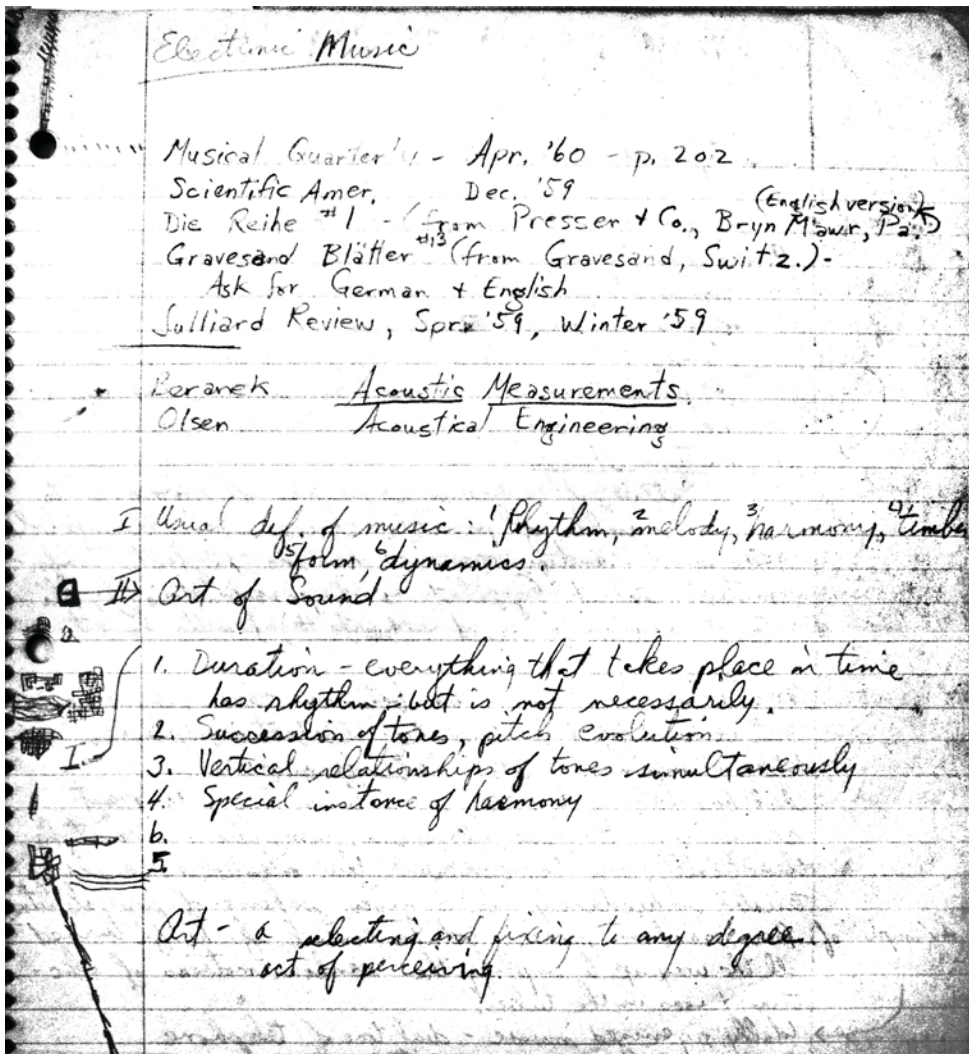 Electronic Music
Musical Quarterly - Apr. '60 - p. 202
Scientific Amer. Dec. '59
(English version)
Die Reihe #1 - (from Presser & Co., Bryn Mawr, Pa.)
Gravesand Blätter #13 (from Gravesand, Switz.) -
Ask for German & English
Julliard Review, Spr. '59, Winter '59
Beranek Acoustic Measurements
Olsen Acoustical Engineering
I Usual def. of music: 1 Rhythm, 2 melody, 3 harmony, 4 timbre
5 form, 6 dynamics.
II Art of Sound
a
1. Duration - everything that takes place in time
has rhythm - but is not necessarily.
2. Succession of tones, pitch evolution
I. 3. Vertical relationships of tones simultaneously
4. Special instance of harmony
6.
5.
Art - a selecting and fixing to any degree
act of perceiving